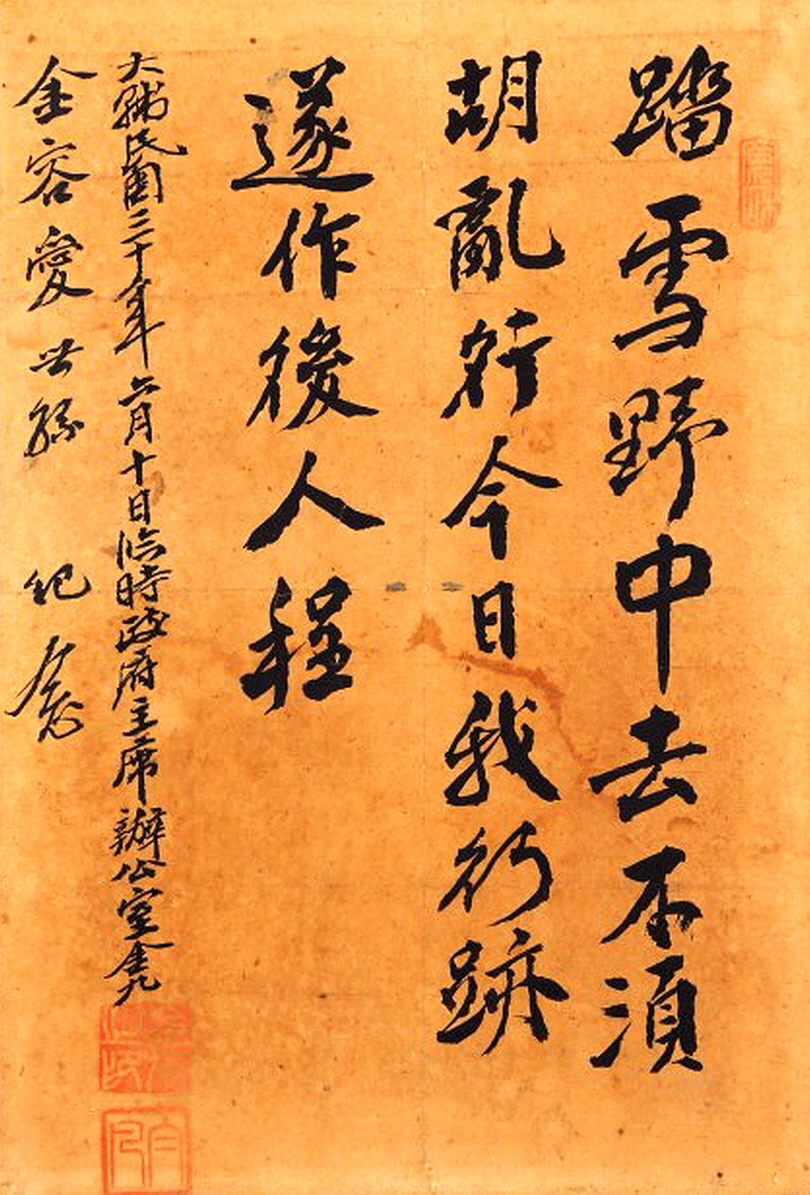 踏雪野中去不須
胡亂行今日我行跡
遂作後人程
大韓民國三十年六月十日臨時政府主席辦公室金九
金容愛世孫 紀念